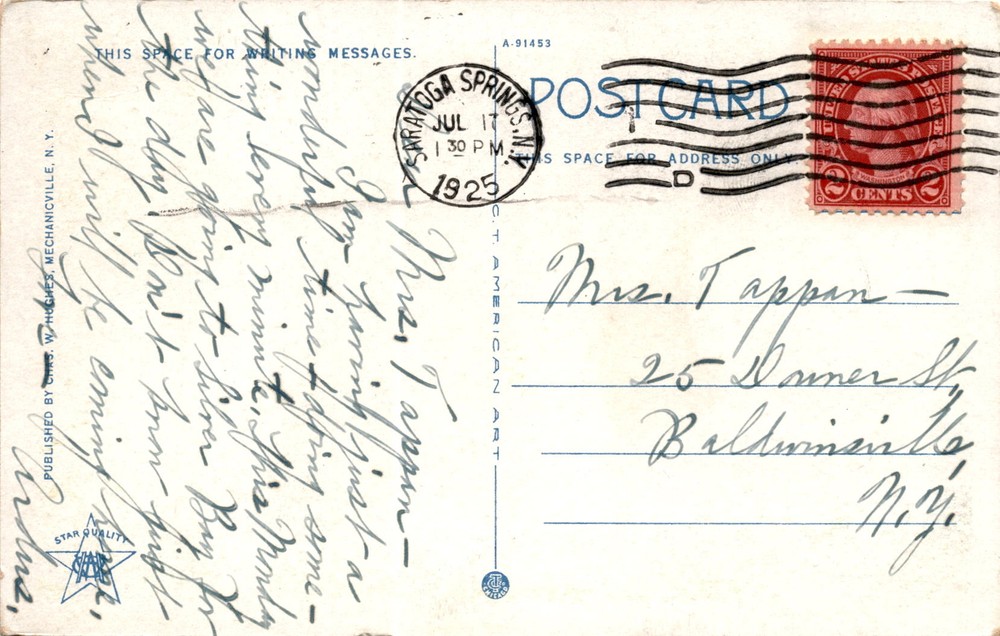 THIS SPACE FOR WRITING MESSAGES.
A-91453
POST CARD
THIS SPACE FOR ADDRESS ONLY
SARATOGA SPRINGS, N.Y.
JUL 17
1 30 PM
1925
D
UNITED STATES POSTAGE
WASHINGTON
2 CENTS 2
Dear Mrs. Tappan—
I am having just a
wonderful time & doing some-
thing every minute. This Monday
we are going to Silver Bay for
the day. Don't know just
when I will be coming home,
Love—
Ardus,
Mrs. Tappan—
25 Downer St,
Baldwinsville,
N.Y.
PUBLISHED BY CHAS. W. HUGHES, MECHANICVILLE, N. Y.
C.T. AMERICAN ART
STAR QUALITY